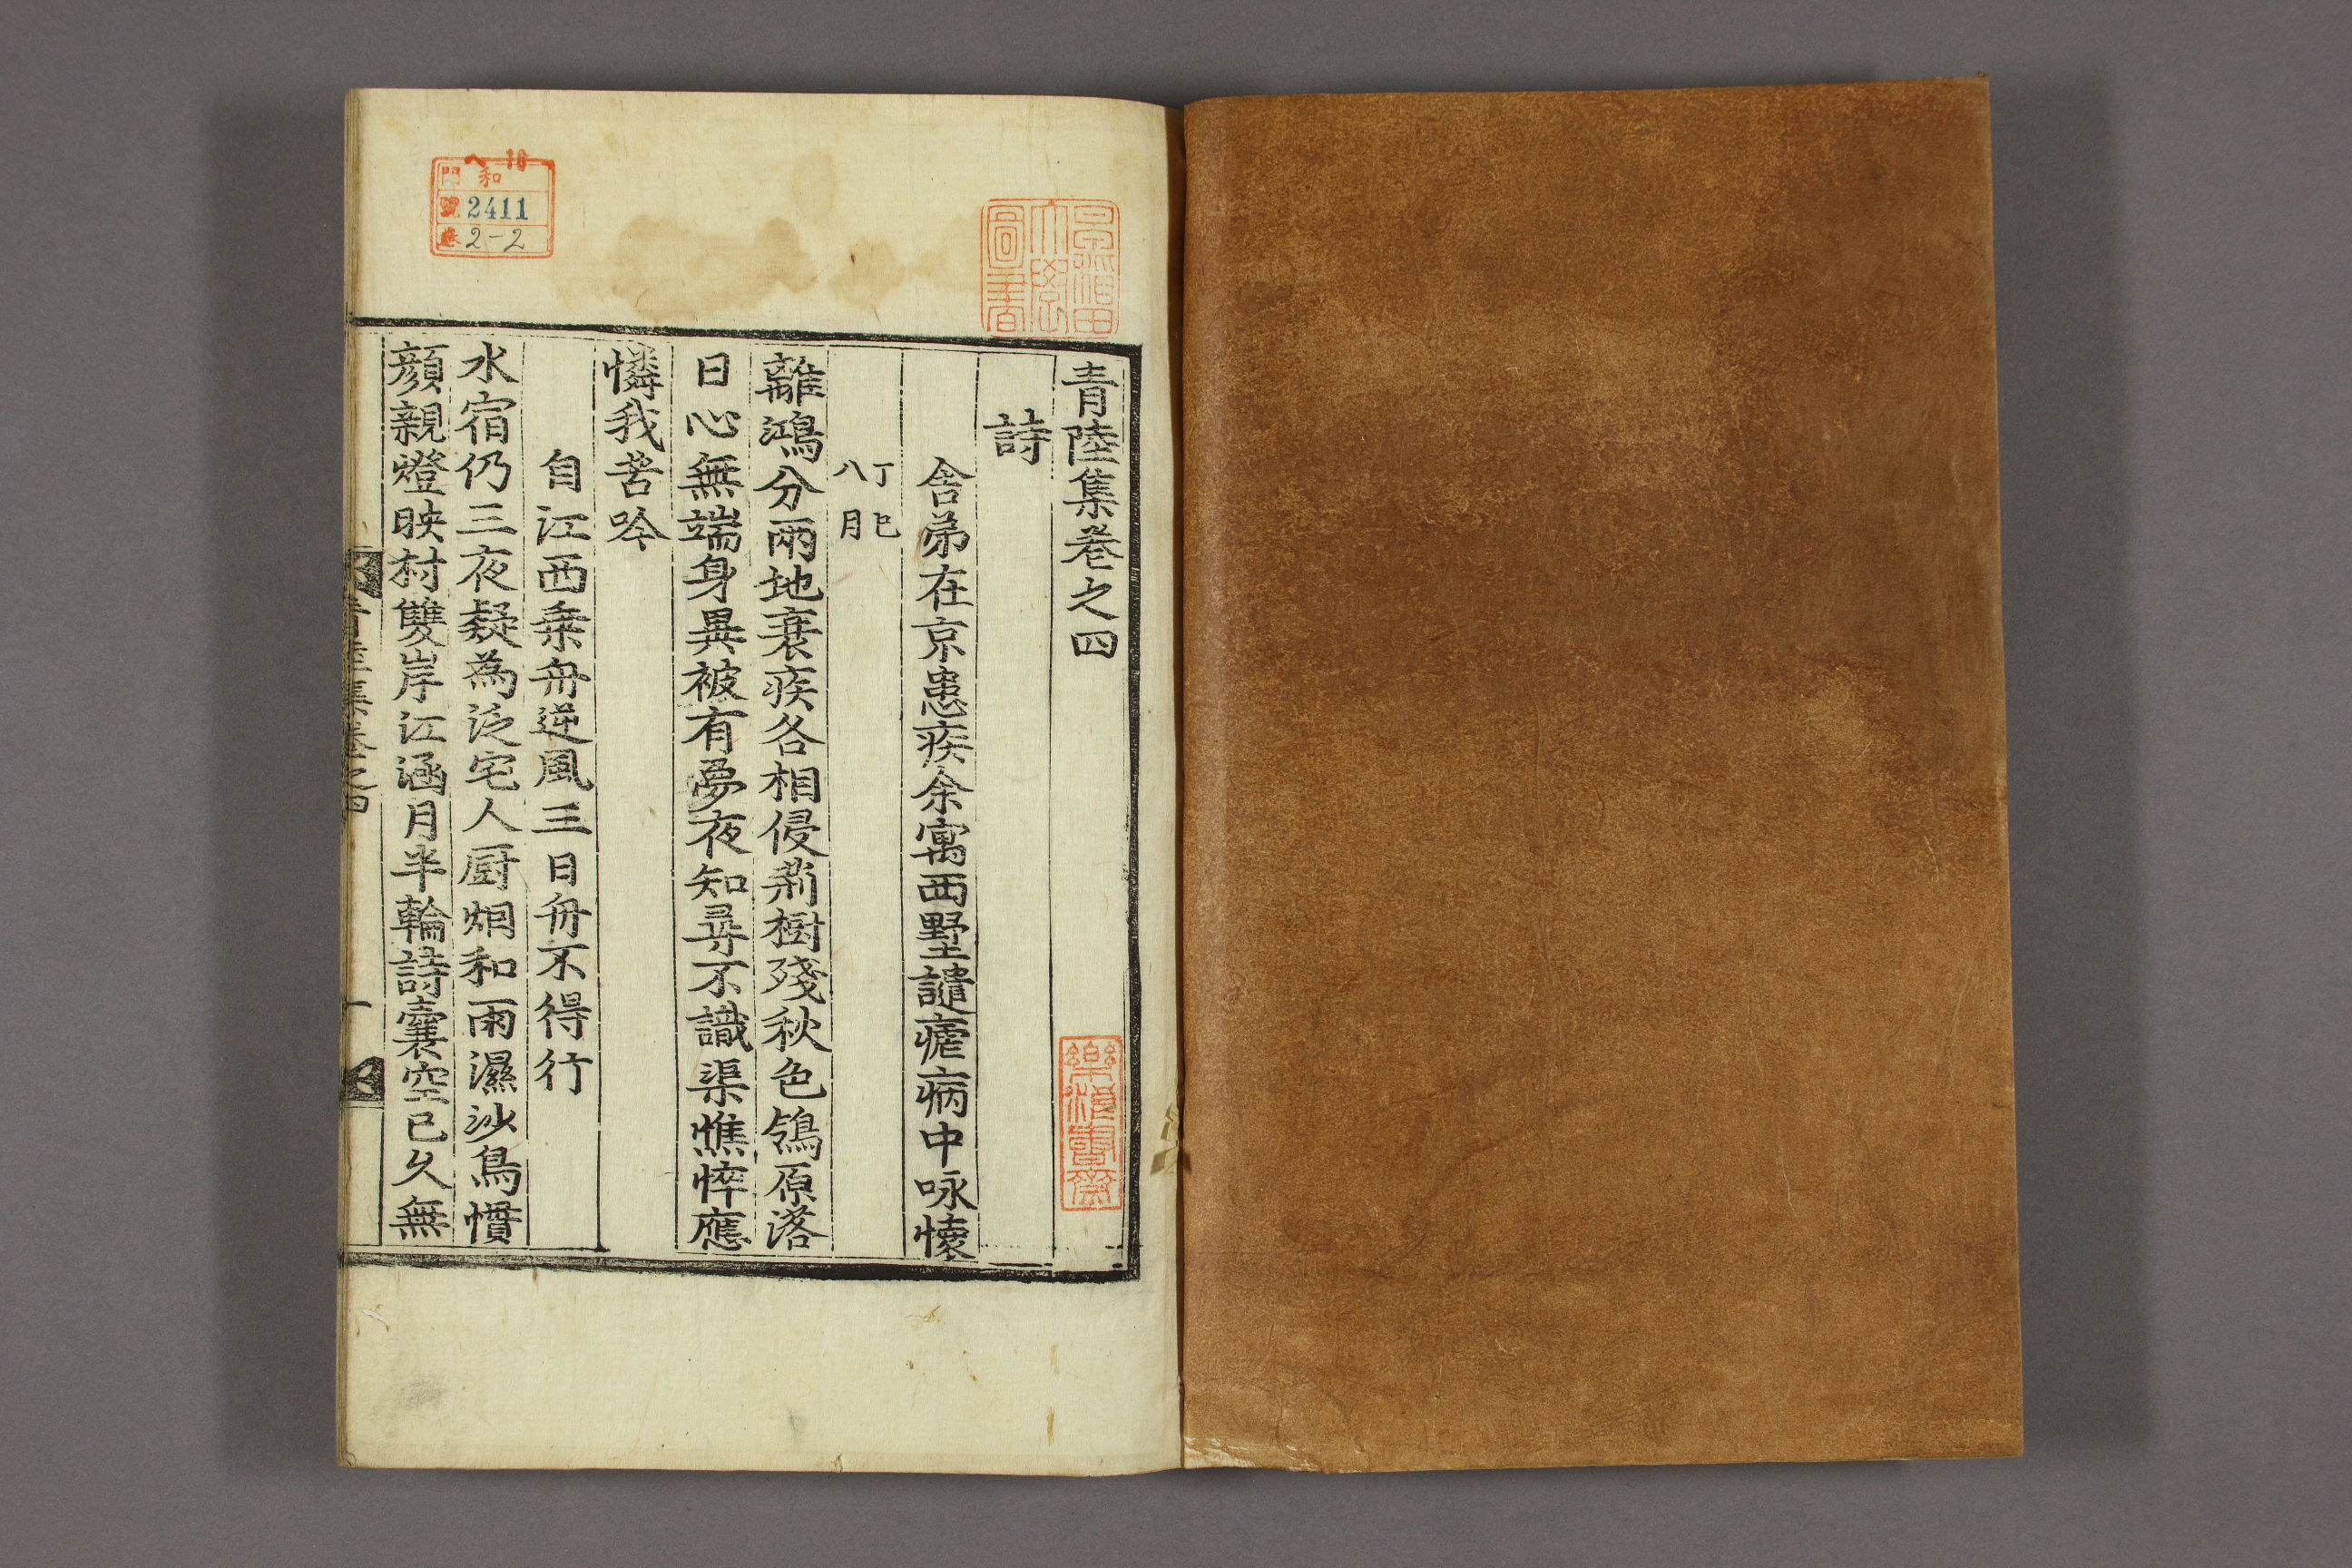 青陸集卷之四
詩
舍弟在京患疾余寓西墅譴瘧病中咏懷
丁巳
八月
離鴻分兩地衰疾各相侵荊樹殘秋色鴒原落
日心無端身異被有夢夜知尋不識渠憔悴應
憐我苦吟
自江西乗舟逆風三日舟不得行
水宿仍三夜疑為泛宅人厨烟和雨濕沙鳥慣
顔親燈映村雙岸江涵月半輪詩囊空已久無
青陸集卷之四
一
早稲田
大學
圖書
樂浪書齋
ヘ 10
門 和
號 2411
卷 2-2